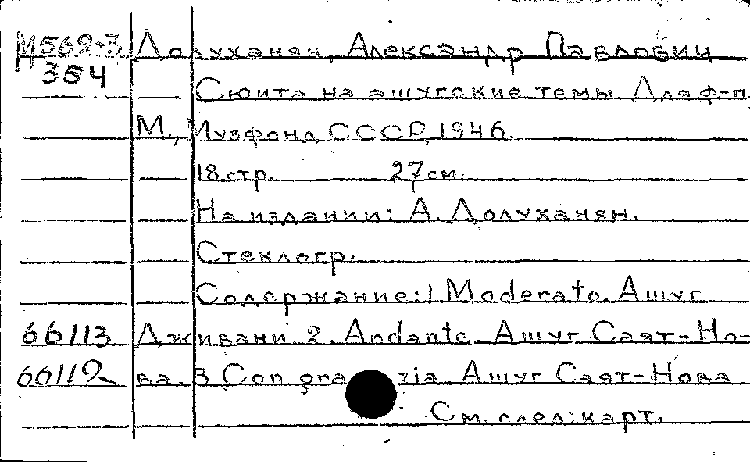 М562-3 Долуханян, Александр Павлович
354
Сюита на ашугские темы Для ф-п
М., Музфонд СССР, 1946.
18 стр. 27 см.
На издании: А. Долуханян.
Стеклогр.
Содержание: 1 Moderato. Ашуг
66113 Дживани 2. Andante. Ашуг Саят-Но-
66112 ва. 3 Con grazia. Ашуг Саят-Нова
См. след. карт.